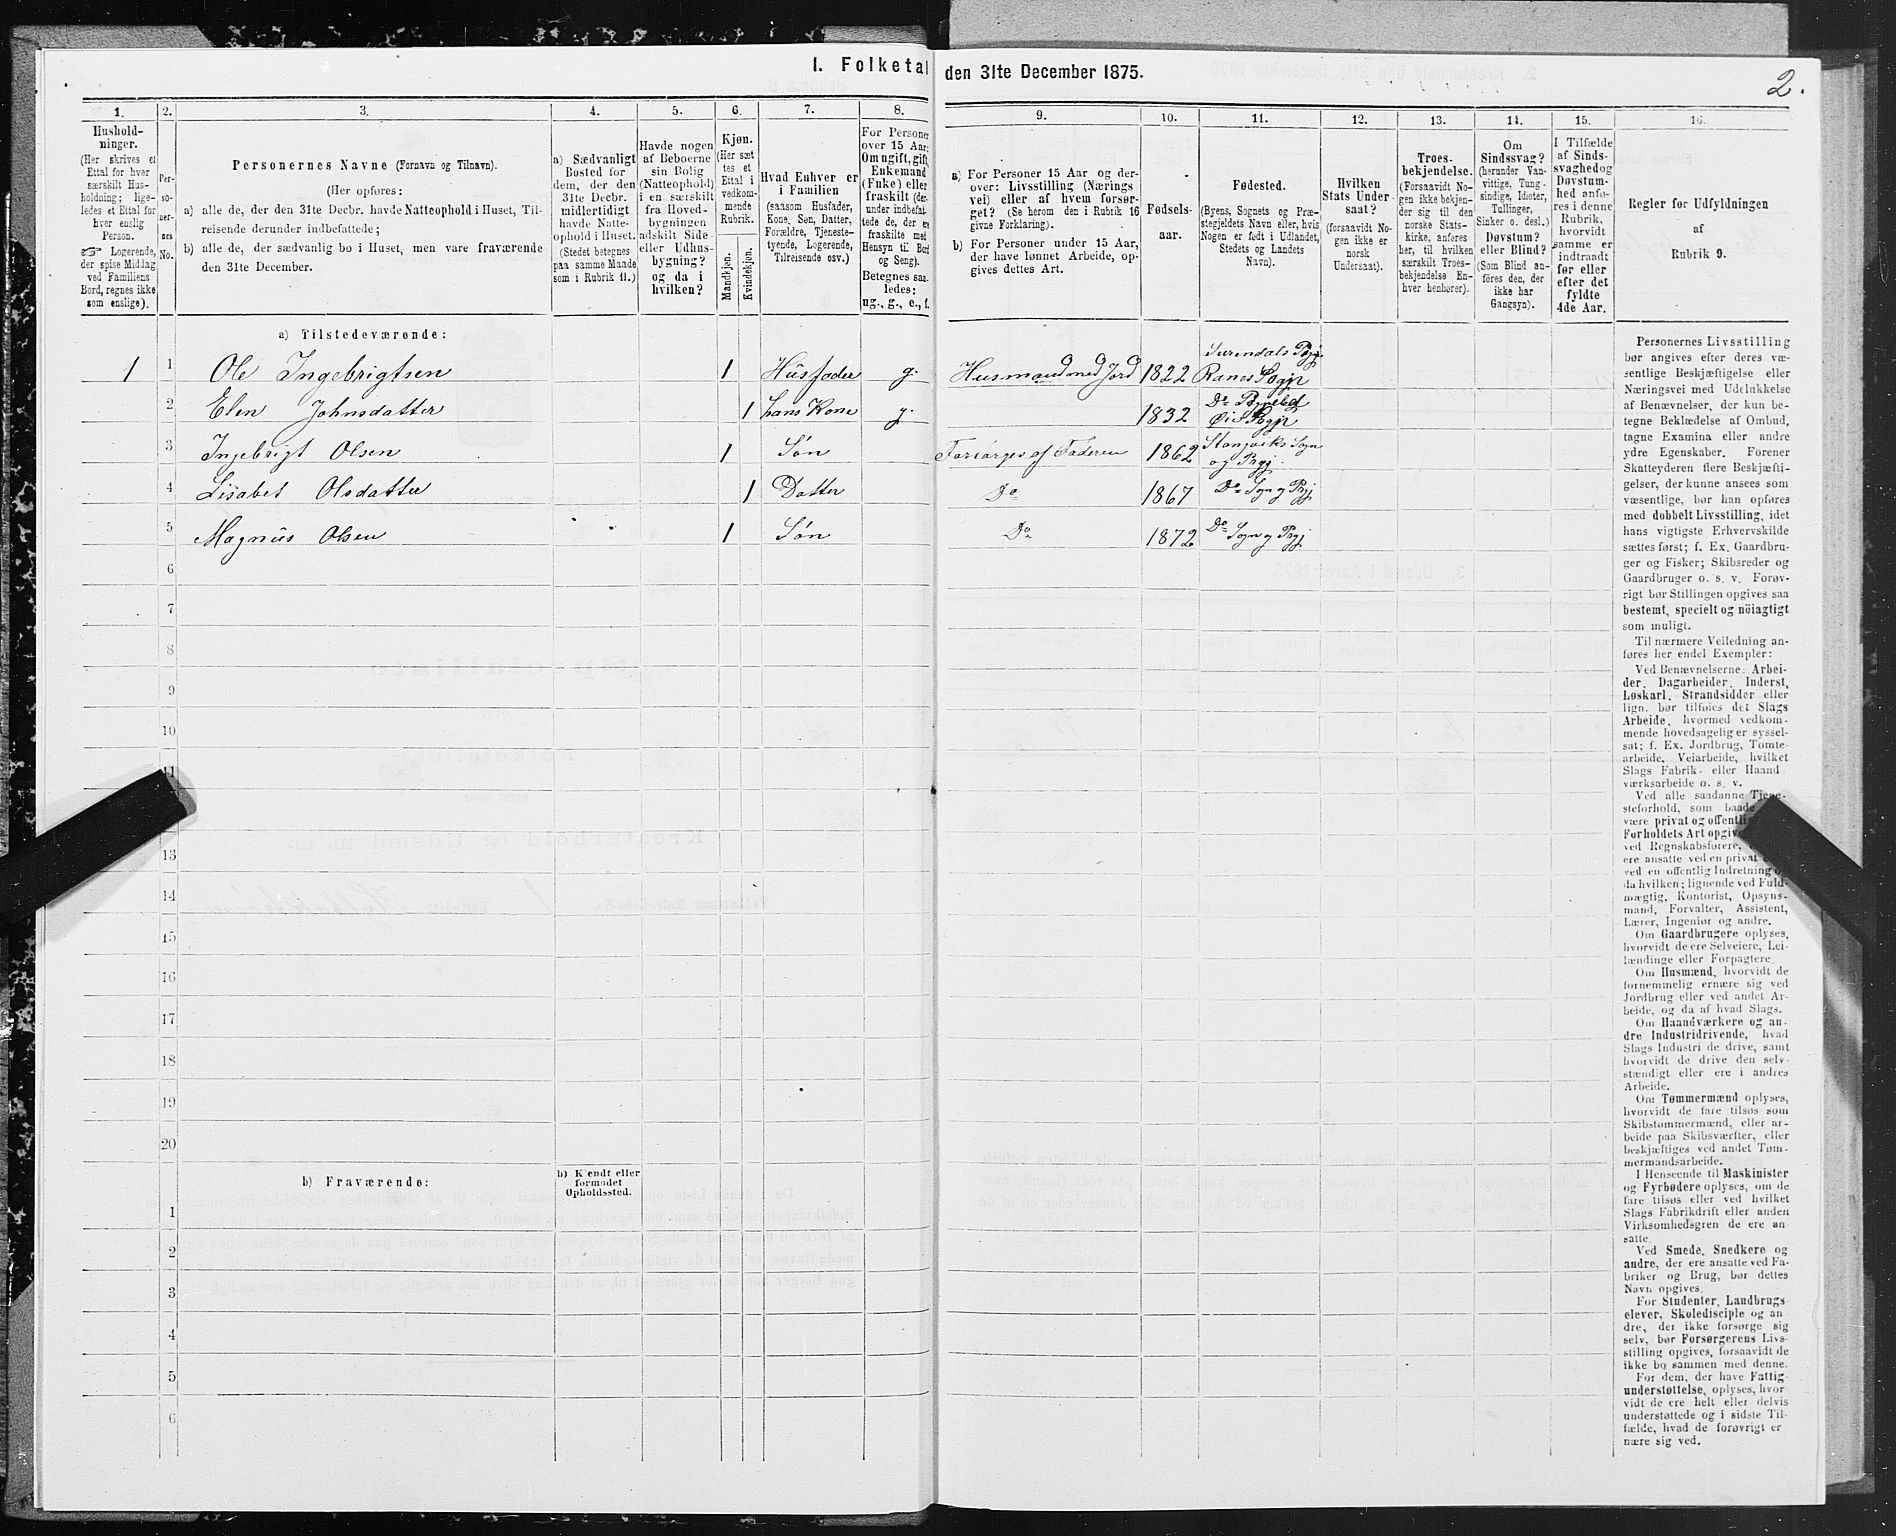 I. Folketal
den 31te December 1875.
2.
1.
Hushold-
ninger.
(Her skrives et
Ettal for hver
særskilt Hus-
holdning; lige-
ledes et Ettal for
hver enslig
Person.
☞ Logerende,
der spise Middag
ved Familiens
Bord, regnes ikke
som enslige).
2.
Per-
so-
ner-
nes
No.
3.
Personernes Navne (Fornavn og Tilnavn).
(Her opføres:
a) alle de, der den 31te Decbr. havde Natteophold i Huset, Til-
reisende derunder indbefattede;
b) alle de, der sædvanlig bo i Huset, men vare fraværende
den 31te December.
4.
a) Sædvanligt
Bosted for
dem, der den
31te Decbr.
midlertidigt
havde Natte-
ophold i Huset.
(Stedet betegnes
paa samme Maade
som i Rubrik 11.)
5.
Havde nogen
af Beboerne
sin Bolig
(Natteophold)
i en særskilt
fra Hoved-
bygningen
adskilt Side-
eller Udhus-
bygning?
og da i
hvilken?
6.
Kjøn.
(Her sæt
tes et
Ettal i
vedkom-
mende
Rubrik.
Mandkjøn.
Kvindekjøn.
7.
Hvad Enhver er
i Familien
(saasom Husfader,
Kone, Søn, Datter,
Forældre, Tjeneste-
tyende, Logerende,
Tilreisende osv.)
8.
For Personer
over 15 Aar;
Om ugift, gift,
Enkemand
(Enke) eller
fraskilt (der-
under indbefat-
tede de, der ere
fraskilte med
Hensyn til Bord
og Seng).
Betegnes saa-
ledes:
ug., g., e., f.
9.
a) For Personer 15 Aar og der-
over: Livsstilling (Nærings
vei) eller af hvem forsør-
get? (Se herom den i Rubrik 16
givne Forklaring).
b) For Personer under 15 Aar,
der have lønnet Arbeide, op-
gives dettes Art.
10.
Fødsels-
aar.
11.
Fødested.
(Byens, Sognets og Præ-
stegjeldets Navn eller, hvis
Nogen er født i Udlandet,
Stedets og Landets
Navn).
12.
Hvilken
Stats Under-
saat?
(forsaavidt No-
gen ikke er
norsk
Undersaat).
13.
Troes-
bekjendelse.
(Forsaavidt No-
gen ikke bekjen-
der sig til den
norske Stats-
kirke, anføres
her, til hvilken
særskilt Troes-
bekjendelse En-
hver henhører).
14.
Om
Sindssvag?
(herunder Van-
vittige, Tung-
sindige, Idioter,
Tullinger,
Sinker o. desl.)
Døvstum?
eller Blind?
(Som Blind an-
føres den, der
ikke har
Gangsyn).
15.
I Tilfælde
af Sinds-
svaghed og
Døvstum-
hed anfø-
res i denne
Rubrik,
hvorvidt
samme er
indtraadt
før eller
efter det
fyldte
4de Aar.
16.
Regler for Udfyldningen
af
Rubrik 9.
a) Tilstedeværende:
1 1 Ole Ingebrigtsen 1 Husfader g. Husmand med Jord 1822 Surendals Prgj. Ranes Sogn
2 Elen Johnsdatter 1 hans Kone g. 1832 Do Øie Sogn
3 Ingebrigt Olsen 1 Søn Forsørges af Faderen 1862 Stangviks Sogn og Prgj.
4 Lisabet Olsdatter 1 Datter Do 1867 Do Sogn og Prgj
5 Magnus Olsen 1 Søn Do 1872 Do Sogn og Prgj
6
7
8
9
10
11
13
14
15
16
17
18
19
20
b) Fraværende:
b) Kjendt eller
formodet
Opholdssted.
1
2
3
4
5
6
Personernes Livsstilling
bør angives efter deres væ-
sentlige Beskjæftigelse eller
Næringsvei med Udelukkelse
af Benævnelser, der kun be-
tegne Beklædelse af Ombud,
tagne Examina eller andre
ydre Egenskaber. Forener
Skatteyderen flere Beskjæfti-
gelser, der kunne ansees som
væsentlige, bør han opføres
med dobbelt Livsstilling, idet
hans vigtigste Erhvervskilde
sættes først; f. Ex. Gaardbru-
ger og Fisker; Skibsreder og
Gaardbruger o. s. v. Forøv-
rigt bør Stillingen opgives saa
bestemt, specielt og nöiagtigt
som muligt.
Til nærmere Veiledning an-
føres her endel Exempler:
Ved Benævnelserne: Arbei-
der, Dagarbeider, Inderst,
Løskarl, Strandsidder eller
lign. bør tilføies det Slags
Arbeide, hvormed vedkom-
mende hovedsagelig er syssel-
sat; f. Ex. Jordbrug, Tomte-
arbeide, Veiarbeide, hvilket
Slags Fabrik- eller Haand
værksarbeide o. s. v.
Ved alle saadanne Tjene-
steforhold, som baade
være privat og offentlig
Forholdets Art opgives
ved Regnskabsførere,
ere ansatte ved en privat
ved en offentlig Indretning
da hvilken; lignende ved Fuld-
mægtig, Kontorist, Opsyns-
mand, Forvalter, Assistent,
Lærer, Ingeniør og andre.
Om Gaardbrugere oplyses,
hvorvidt de ere Selveiere, Lei-
lændinge eller Forpagtere.
Om Husmænd, hvorvidt de
fornemmelig ernære sig ved
Jordbrug eller ved andet Ar-
beide, og da af hvad Slags.
Om Haandværkere og an-
dre Industridrivende, hvad
Slags Industri de drive, samt
hvorvidt de drive den selv-
stændigt eller ere i andres
Arbeide.
Om Tømmermænd oplyses,
hvorvidt de fare tilsøs som
Skibstømmermænd, eller ar-
beide paa Skibsværfter, eller
beskjæftiges ved andet Tøm-
mermandsarbeide.
I Henseende til Maskinister
og Fyrbødere oplyses, om de
fare tilsøs eller ved hvilket
Slags Fabrikdrift eller anden
Virksomhedsgren de ere an-
satte.
Ved Smede, Snedkere og
andre, der ere ansatte ved Fa-
briker og Brug, bør dettes
Navn opgives.
For Studenter, Landbrugs-
elever, Skoledisciple og an-
dre, der ikke forsørge sig
selv, bør Forsørgerens Livs-
stilling opgives, forsaavidt de
ikke bo sammen med denne.
For dem, der have Fattig-
understøttelse, oplyses, hvor-
vidt de ere helt eller delvis
understøttede og i sidste Til-
fælde, hvad de forøvrigt er
nære sig ved.